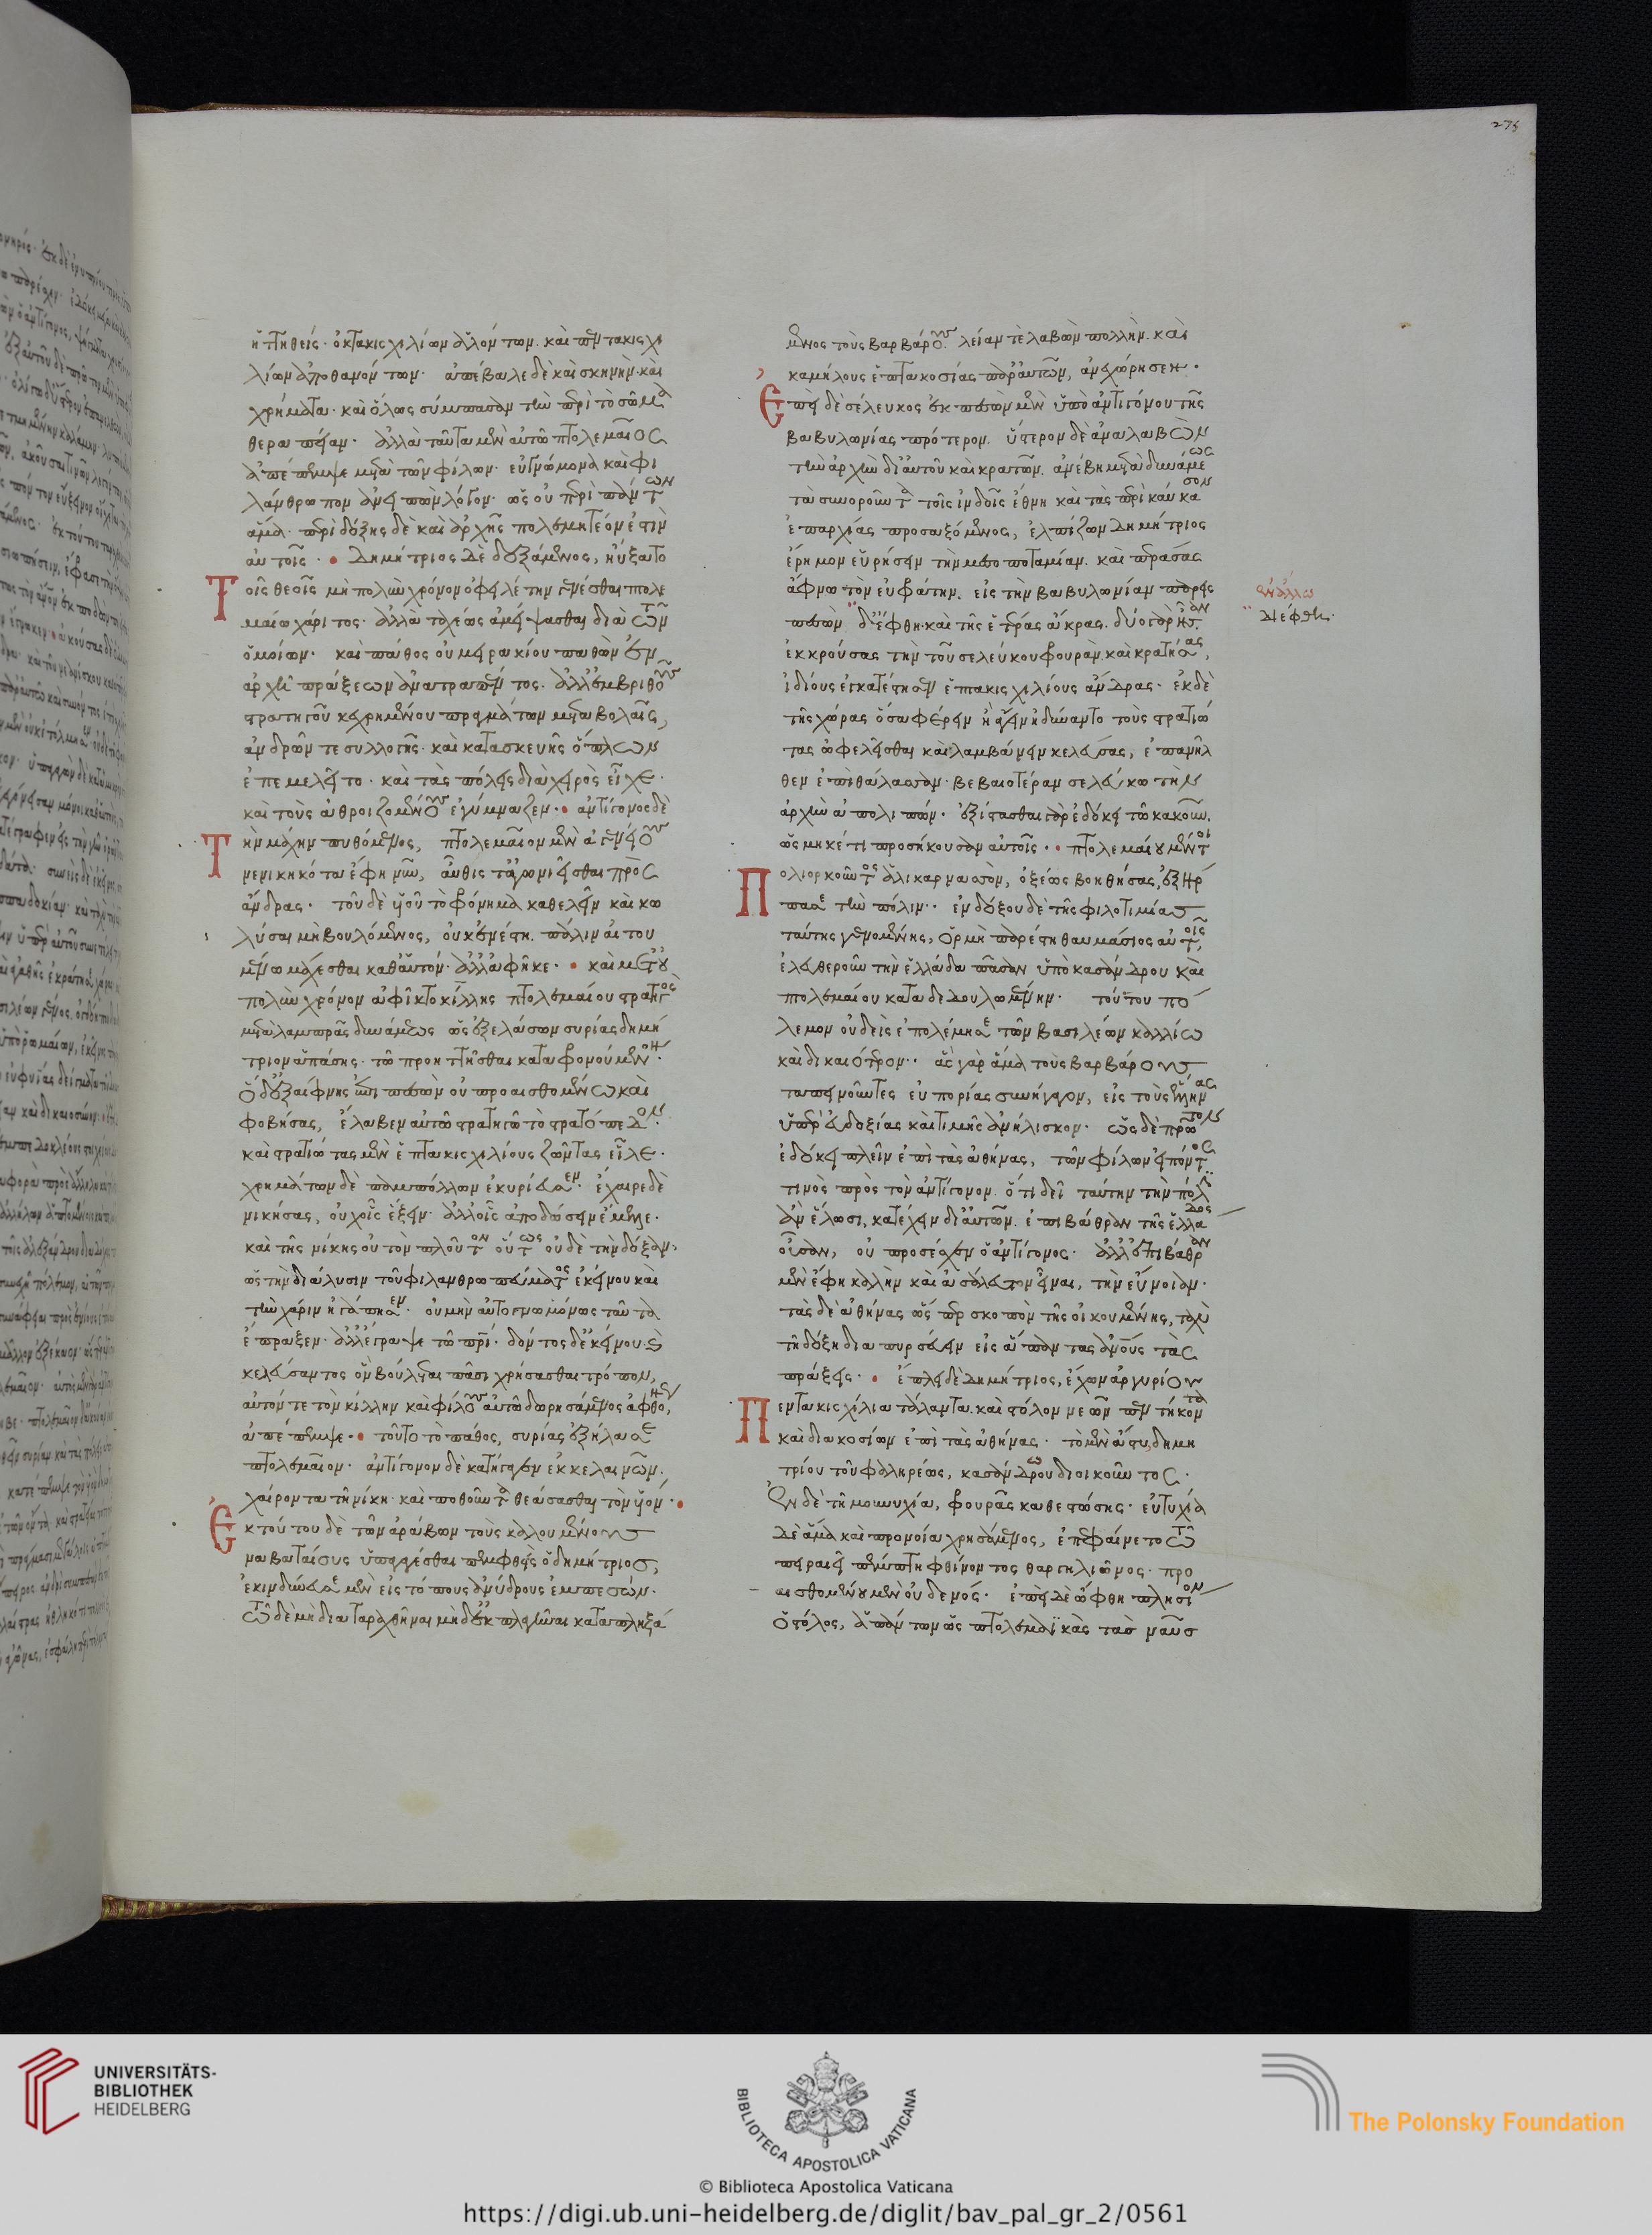 275
ἡττηθείς· ὀκτακισχιλίων ἁλόντων· καὶ πεντακισχι
λίων ἀποθανόντων· ἀπέβαλε δὲ καὶ σκηνὴν· καὶ
χρήματα· καὶ ὅλως σύμπασαν τὴν περὶ τὸ σῶμα
θεραπείαν· ἀλλὰ ταῦτα μὲν αὐτῶ πτολεμαῖος
ἀπέπεμψε μετὰ τῶν φίλων· εὐγνώμονα καὶ φι
λάνθρωπον ἀνειπὼν λόγον· ὡς οὐ περὶ πάντων
ἅμα· περὶ δόξης δὲ καὶ ἀρχῆς πολεμητέον ἐστὶν
αὐτοῖς· Δημήτριος δὲ δεξάμενος, ηὔξατο
Τοῖς θεοῖς μὴ πολὺν χρόνον ὀφειλέτην γενέσθαι πτολε
μαίω χάριτος· ἀλλὰ ταχέως ἀμείψασθαι διὰ τῶν
ὁμοίων· καὶ πάθος οὐ μειρακίου παθὼν ἐν
ἀρχῆ πράξεων ἀνατραπέντος· ἀλλ' ἐμβριθοῦς
στρατηγοῦ κεχρημένου πραγμάτων μεταβολαῖς,
ἀνδρῶν τε συλλογῆς· καὶ κατασκευῆς ὅπλων
ἐπεμελεῖτο· καὶ τὰς πόλεις διὰ χειρὸς εἶχε·
καὶ τοὺς ἀθροιζομένους ἐγύμναζεν· ἀντίγονος δὲ
Τὴν μάχην πυθόμενος, πτολεμαῖον μὲν ἀγενείους
νενικηκότα ἔφη νῦν, αὖθις δ' ἀγωνιεῖσθαι πρὸς
ἄνδρας· τοῦ δὲ υἱοῦ τὸ φρόνημα καθελεῖν καὶ κω
λύσαι μὴ βουλόμενος, οὐκ ἐνέστη πάλιν αἰτου
μένω μάχεσθαι καθ' αὑτόν· ἀλλ' ἀφῆκε· καὶ μετ' οὐ
πολὺν χρόνον ἀφῖκτο κίλλης πτολεμαίου στρατηγὸς
μετὰ λαμπρᾶς δυνάμεως ὡς ἐξελάσων συρίας δημή
τριον ἁπάσης· τῶ προηττῆσθαι καταφρονούμενον·
Ὁ δ' ἐξαίφνης ἐπιπεσὼν οὐ προαισθομένω καὶ
φοβήσας, ἔλαβεν αὐτῶ στρατηγῶ τὸ στρατόπεδον·
καὶ στρατιώτας μὲν ἑπτακισχιλίους ζῶντας εἷλε·
χρημάτων δὲ παμπόλλων ἐκυρίευσεν· ἔχαιρε δὲ
νικήσας, οὐχ οἷς ἕξειν· ἀλλ' οἷς ἀποδώσειν ἔμελλε·
καὶ τῆς νίκης οὐ τὸν πλοῦτον οὕτως οὐδὲ τὴν δόξαν·
ὡς τὴν διάλυσιν τοῦ φιλανθρωπεύματος ἐκείνου καὶ
τὴν χάριν ἠγάπησεν· οὐ μὴν αὐτογνωμόνως ταῦτα
ἔπραξεν· ἀλλ' ἔγραψε τῶ πατρί· δόντος δ' ἐκείνου καὶ
κελεύσαντος ὃν βούλεται πᾶσι χρήσασθαι τρόπον,
αὐτόν τε τὸν κίλλην καὶ φίλους αὐτῶ δωρησάμενος ἀφθό,
ἀπέπεμψε· τοῦτο τὸ πάθος, συρίας ἐξήλασε
πτολεμαῖον· ἀντίγονον δὲ κατήγαγεν ἐκ κελαινῶν·
χαίροντα τῆ νίκη· καὶ ποθοῦντα θεάσασθαι τὸν υἱόν·
Ἐκ τούτου δὲ τῶν ἀράβων τοὺς καλουμένους
ναβαταίους ὑπαγαγέσθαι πεμφθεὶς ὁ δημήτριος,
ἐκινδύνευσε μὲν εἰς τόπους ἀνύδρους ἐμπεσών·
τῶ δὲ μὴ διαταραχθῆναι μὴ δ' ἐκπλαγῆναι καταπληξά
μενος τοὺς βαρβάρους· λείαν τὲ λαβὼν πολλὴν· καὶ
καμήλους ἑπτακοσίας παρ' αὐτῶν, ἀνεχώρησεν·
Ἐπεὶ δὲ σέλευκος ἐκπεσὼν μὲν ὑπὸ ἀντιγόνου τῆς
βαβυλωνίας πρότερον· ὕστερον δὲ ἀναλαβὼν
τὴν ἀρχὴν δι' αὑτοῦ καὶ κρατῶν· ἀνέβη μετὰ δυνάμεως
τὰ συνοροῦντα τοῖς ἰνδοῖς ἔθνη καὶ τὰς περὶ καύκασον
ἐπαρχίας προσαξόμενος, ἐλπίζων Δημήτριος
ἔρημον εὑρήσειν τὴν μεσοποταμίαν· καὶ περάσας
ἄφνω τὸν εὐφράτην· εἰς τὴν βαβυλωνίαν παρεις
πεσὼν· διέφθη· καὶ τῆς ἑτέρας ἄκρας· δύο γὰρ ἦσαν
ἐκκρούσας τὴν τοῦ σελεύκου φρουρὰν· καὶ κρατήσας,
ἰδίους ἐγκατέστησεν ἑπτακισχιλίους ἄνδρας· ἐκ δὲ
τῆς χώρας ὅσα φέρειν ἢ ἄγειν ἠδύναντο τοὺς στρατιώ
τας ὠφελεῖσθαι καὶ λαμβάνειν κελεύσας, ἐπανῆλ
θεν ἐπὶ θάλασσαν· βεβαιοτέραν σελεύκω τὴν
ἀρχὴν ἀπολιπών· ἐξίστασθαι γὰρ ἐδόκει τῶ κακοῦν·
ὡς μηκέτι προσήκουσαν αὐτοῖς· πτολεμαίου μέντοι
Πολιορκοῦντος ἁλικαρνασσὸν, ὀξέως βοηθήσας, ἐξήρ
πασε τὴν πόλιν· ἐνδόξου δὲ τῆς φιλοτιμίας
ταύτης γενομένης, ὁρμὴ παρέστη θαυμάσιος αὐτοῖς,
ἐλευθεροῦν τὴν ἑλλάδα πᾶσαν ὑπὸ κασάνδρου καὶ
πτολεμαίου καταδεδουλωμένην· τούτου πό
λεμον οὐδεὶς ἐπολέμησε τῶν βασιλέων καλλίω
καὶ δικαιότερον· ἃς γὰρ ἅμα τοὺς βαρβάρους
ταπεινοῦντες εὐπορίας συνήγαγον, εἰς τοὺς ἕλληνας
ὑπὲρ εὐδοξίας καὶ τιμῆς ἀνήλισκον· ὡς δὲ πρῶτον
ἐδόκει πλεῖν ἐπὶ τὰς ἀθήνας, τῶν φίλων εἰπόντος
τινὸς πρὸς τὸν ἀντίγονον· ὅτι δεῖ ταύτην τὴν πόλιν
ἂν ἕλωσι, κατέχειν δι' αὑτῶν· ἐπιβάθραν τῆς ἑλλάδος
οὖσαν, οὐ προσέσχεν ὁ ἀντίγονος· ἀλλ' ἐπιβάθραν
μὲν ἔφη καλὴν καὶ ἀσάλευτον εἶναι, τὴν εὔνοιαν·
τὰς δὲ ἀθήνας ὥσπερ σκοπὸν τῆς οἰκουμένης, ταχὺ
τῆ δόξη διαπυρσεύειν εἰς ἅπαντας ἀνθρώπους τὰς
πράξεις· ἔπλει δὲ Δημήτριος, ἔχων ἀργυρίου
Πεντακισχίλια τάλαντα· καὶ στόλον νεῶν πεντήκοντα
καὶ διακοσίων ἐπὶ τὰς ἀθήνας· τὸ μὲν ἄστυ, δημη
τρίου τοῦ φαληρέως, κασάνδρω διοικοῦντος·
Ἐν δὲ τῆ μουνυχία, φρουρᾶς καθεστώσης· εὐτυχία
δὲ ἅμα καὶ προνοία χρησάμενος, ἐπεφαίνετο τῶ
πειραιεῖ πέμπτη φθίνοντος θαργηλιῶνος· προ
αισθομένου μὲν οὐδενός· ἐπεὶ δὲ ὤφθη πλησίον
ὁ στόλος, ἁπάντων ὡς πτολεμαϊκὰς τὰς ναῦς
ἐν ἄλλω
διέφθη·
UNIVERSITÄTS-
BIBLIOTHEK
HEIDELBERG
BIBLIOTECA APOSTOLICA VATICANA
The Polonsky Foundation
© Biblioteca Apostolica Vaticana
https://digi.ub.uni-heidelberg.de/diglit/bav_pal_gr_2/0561